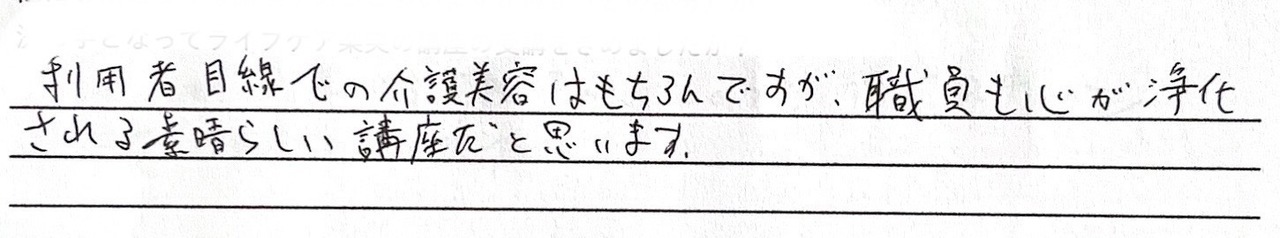 利用者目線での介護美容はもちろんですが、職員も心が浄化
される素晴らしい講座だと思います。